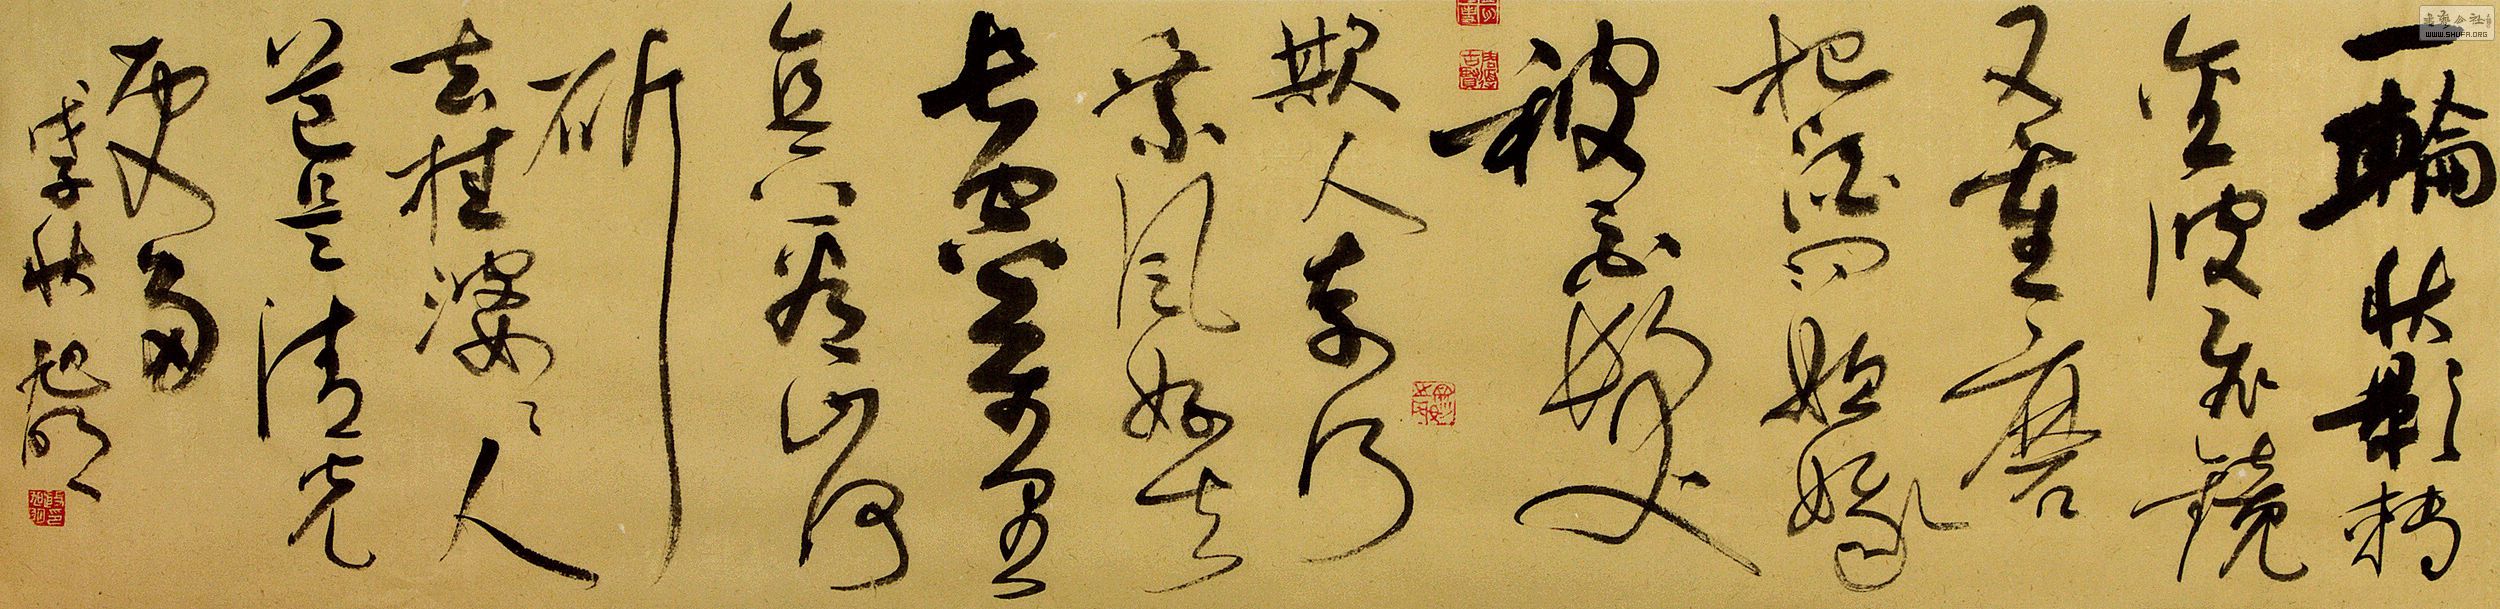 一輪秋影轉
金波飛鏡
又重磨
把酒问姮娥
被白髮
欺人奈何
乘风好去
长空万里
直下看山河
斫
去桂婆娑人
道是清光
更多
戊子秋
書藝公社
WWW.SHUFA.ORG